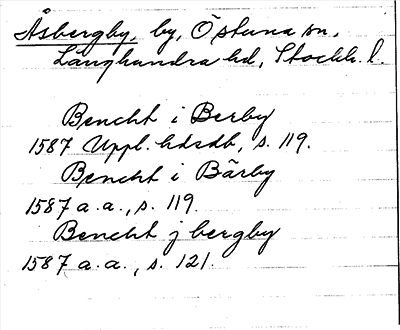 Åsbergby, by, Östuna sn,
Långhundra hd, Stockh. l.
Bencht i Berby
1587 Uppl. hdsdb, s. 119.
Bencht i Bärby
1587 a.a., s. 119.
Bencht j bergby
1587 a.a., s. 121.